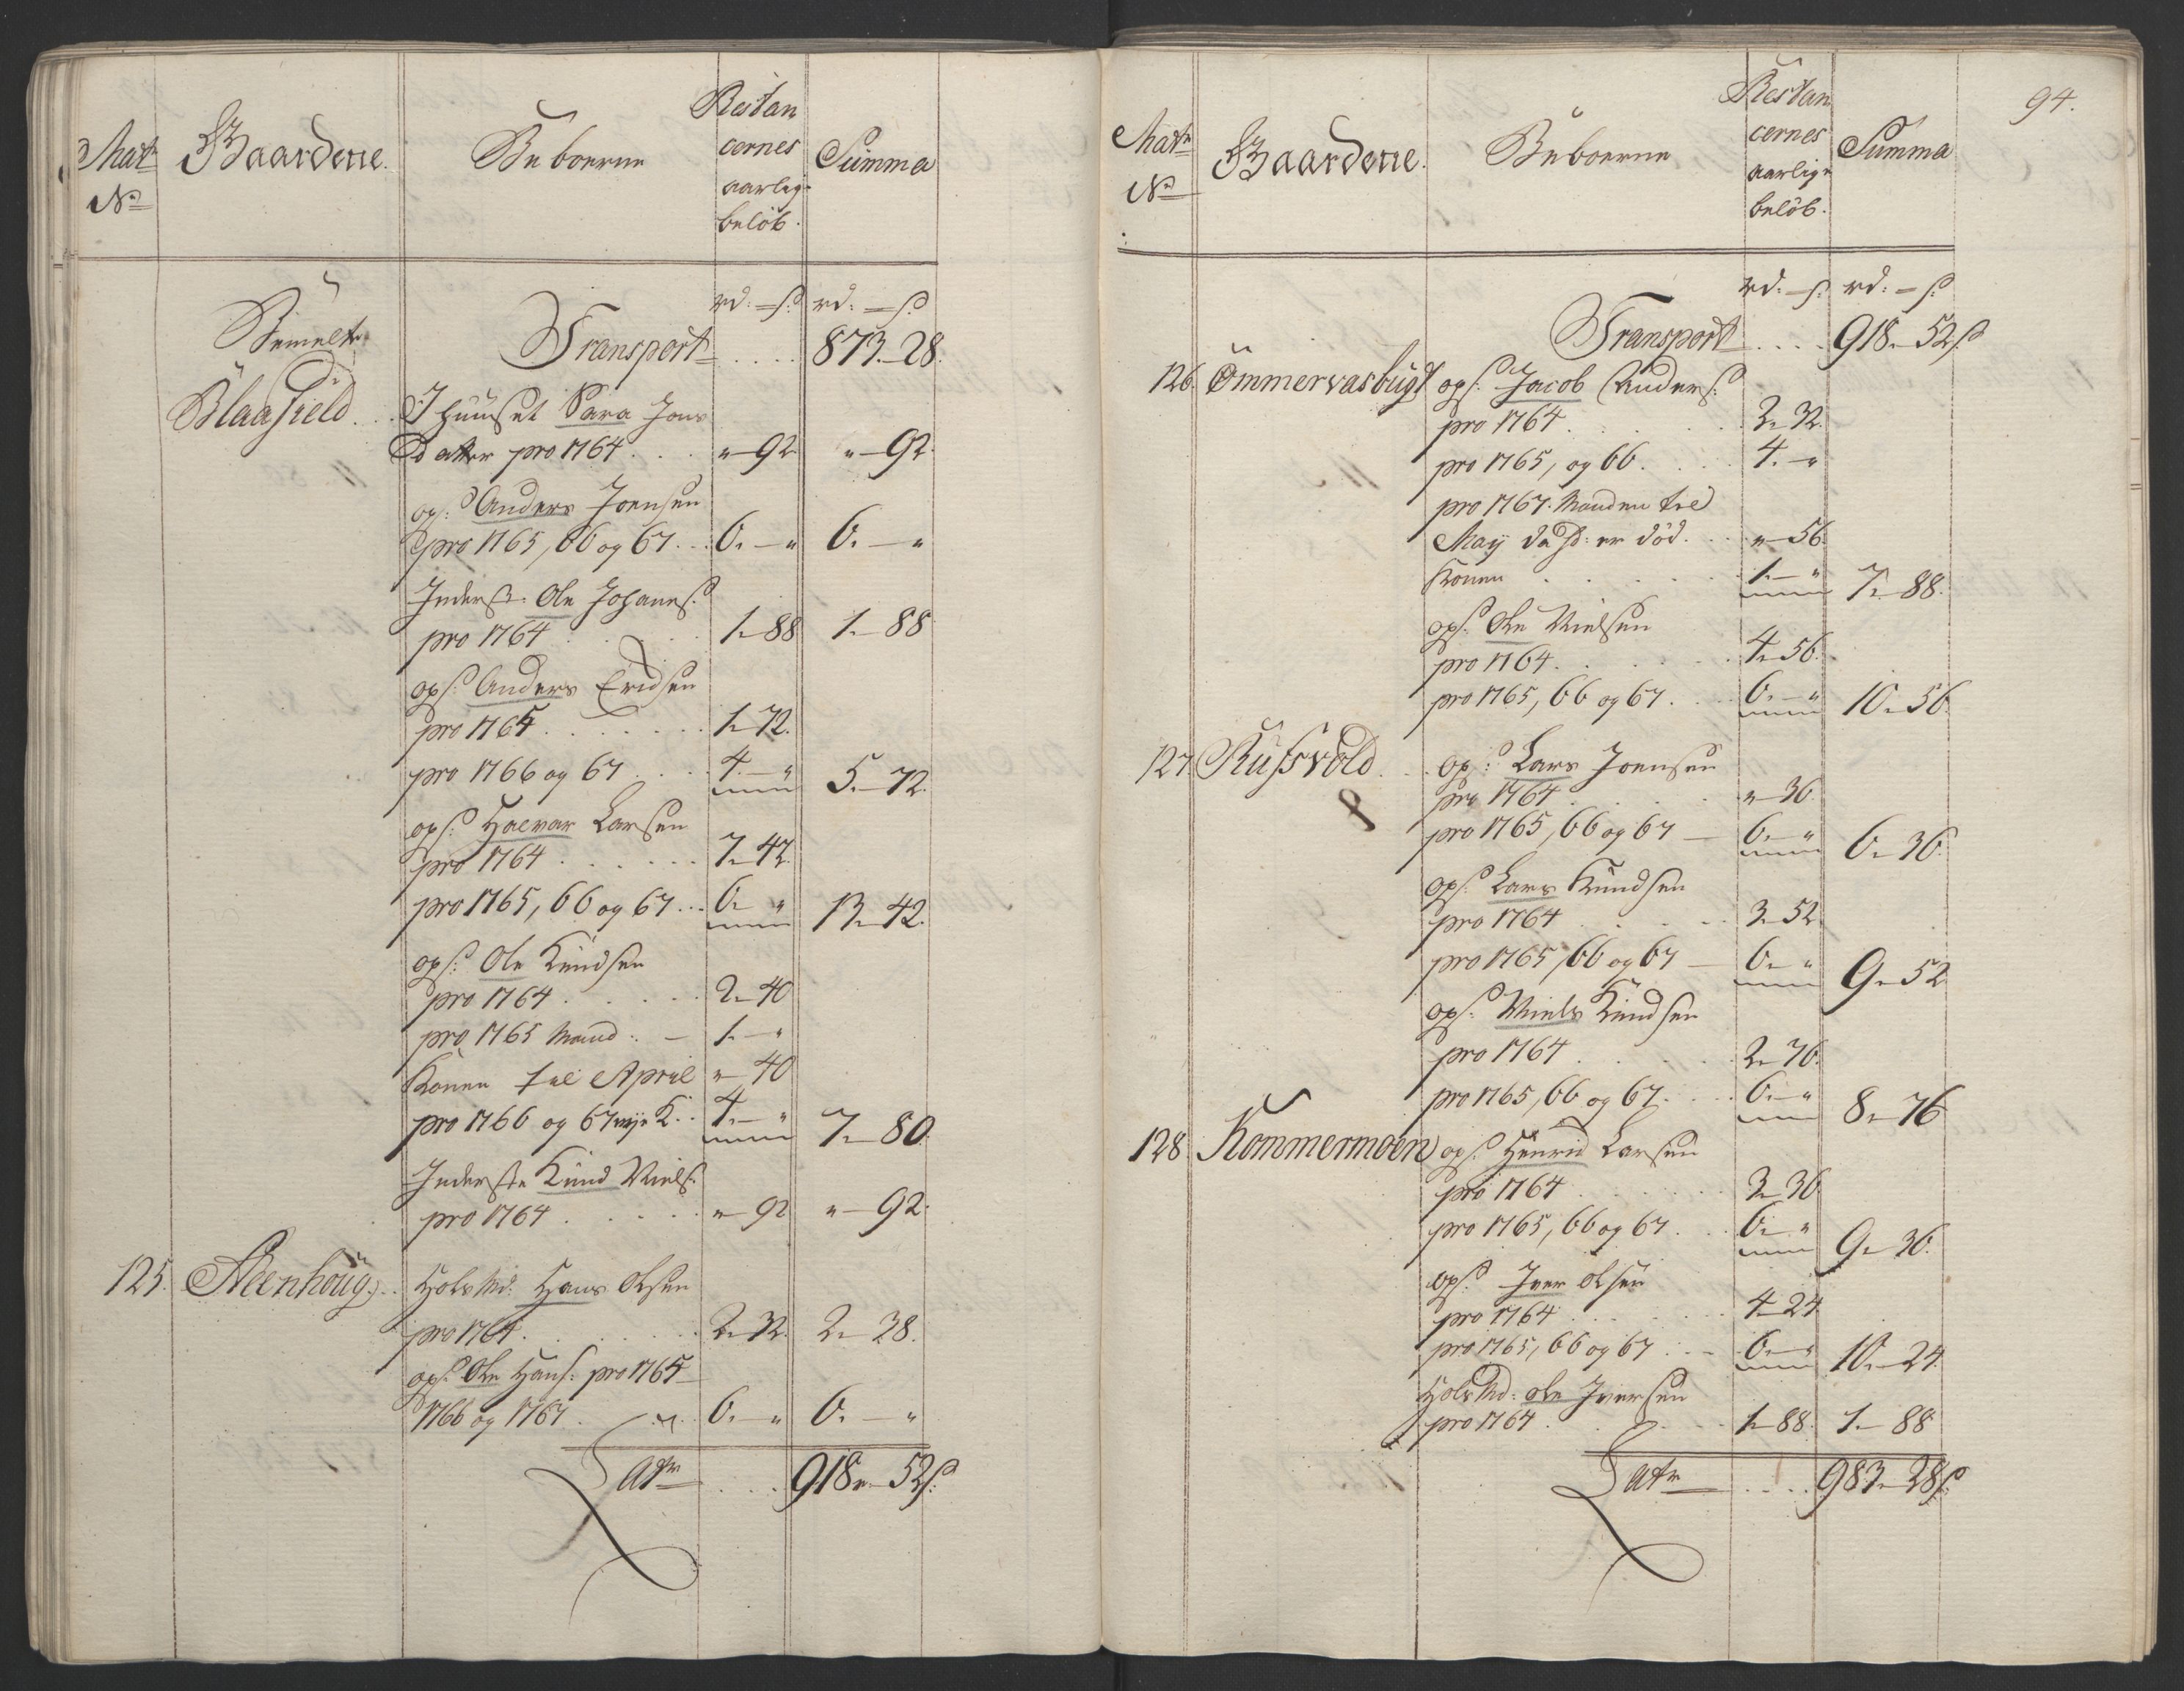 Matr
No
Gaardene.
Beboerne
Restan
cernes
aarlige
beløb.
Summa
rd: – s: rd: – s:
Bemelte
Transport . . . . 873. – 28.
Blaafield. . I huuset Sara Jons
Datter pro 1764 . . . " – 92. " – 92.
ops: Anders Joensen
pro 1765, 66 og 67. . . 6. – " 6. – "
Inderst. Ole Johans:
pro 1764 . . . . . 1. – 88 1. – 88
ops: Anders Ericksen
pro 1765 . . . . . . . 1. – 72.
pro 1766 og 67 . . . 4. – " 5. – 72.
ops: Halvar Larsen
pro 1764 . . . . . . 7. – 42.
pro 1765, 66 og 67 . . . 6. – " 13. – 42.
ops: Ole Knudsen
pro 1764 . . . . . . 2. – 40
pro 1765 Mand . – 1. – "
Konen til April " – 40
pro 1766 og 67 nye K. . 4. – " 7. – 80.
Inderste Knud Niels:
pro 1764 . . . . . " – 92 " – 92.
125. Steenhoug. . . Holds Md: Hans Olsen
pro 1764. . . . . . . 2. – 32. 2. – 38.
ops: Ole Hans: pro 1765
1766 og 1767 . . . 6. – " 6. – "
Latr . . . 918. – 52 s:
94.
Matr
No
Gaardene.
Beboerne
Restan
cernes
aarlige
beløb.
Summa
rd: – s: rd: – s:
Transport . . . . 918. – 52 s
126. Ommervasbugt ops: Jacob Anders:
pro 1764 . . . . . . 2. – 32.
pro 1765, og 66 . . . . 4. – "
pro 1767. Manden til
Maij da hd: er død. . . " – 56.
Konen . . . . . . 1. – " 7. – 88.
ops: Ole Nielsen
pro 1764 . . . . . . 4. – 56.
pro 1765, 66 og 67 . . . 6. – " 10. – 56.
127. Russvold . . . ops: Lars Joensen
pro 1764 . . . . . " – 36
pro 1765, 66 og 67 – 6. – " 6. – 36.
ops: Lars Knudsen
pro 1764 . . . . . . 3. – 52
pro 1765, 66 og 67 – 6. – " 9. – 52
ops: Niels Knudsen
pro 1764 . . . . . . 2. – 76.
pro 1765, 66 og 67. . . . 6. – " 8. – 76
128. Kommermoen ops: Henrick Larsen
pro 1764 . . . . . . 3. – 36
pro 1765, 66 og 67 . . 6. – " 9. – 36.
ops: Iver Olsen
pro 1764 . . . . . . 4. – 24.
pro 1765, 66 og 67 . . – 6. – " 10. – 24.
Holds Md: Ole Iversen
pro 1764 . . . . . 1. – 88. 1. – 88
Latr . . . . 983. – 28 s: